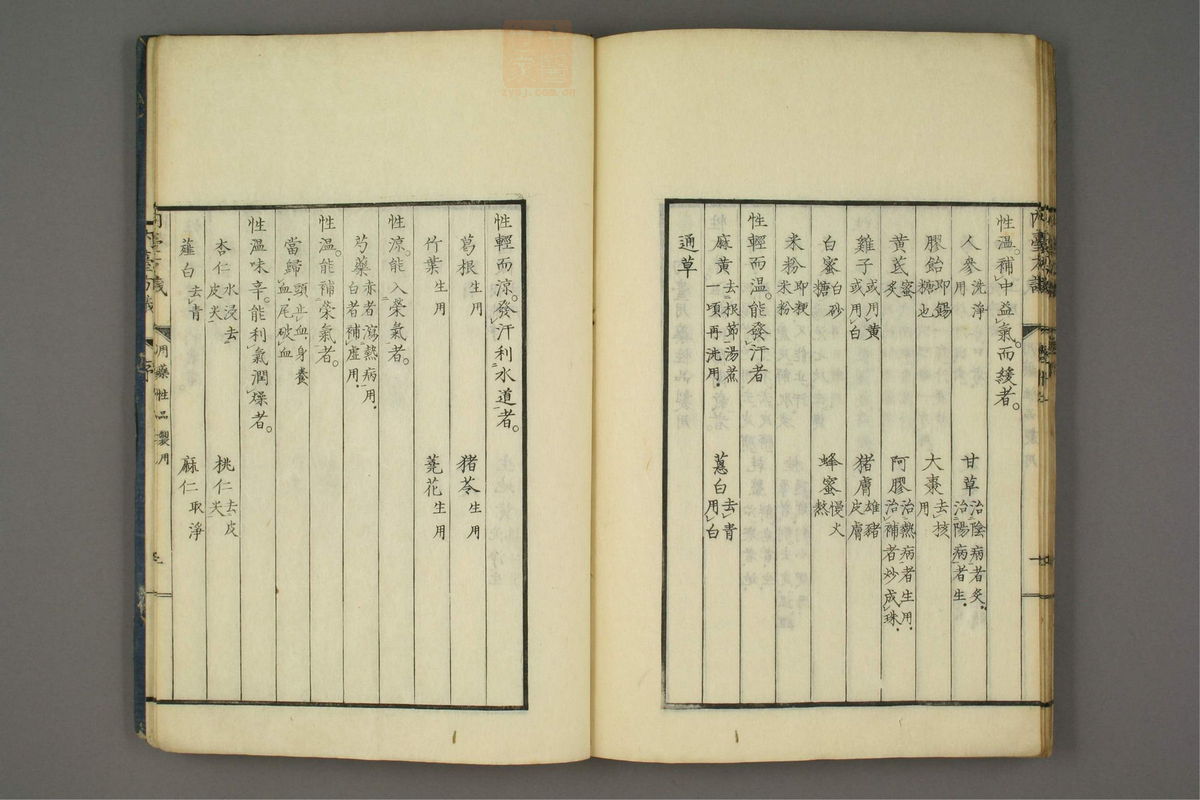 性溫。補中益氣。而緩者。
人參洗淨用 甘草治陰病者炙治陽病者生
膠飴即錫糖也 大棗去核用
黃茋蜜炙 阿膠治熱病者生用治補者炒成珠
雞子或用黃或用白 猪膚雄豬皮膚
白蜜白砂糖 蜂蜜慢火熬
米粉即粳米粉
性輕而溫。能發汗者
麻黃去根節湯煮一頃再洗用 蔥白去青用白
通草
性輕而涼。發汗利水道者。
葛根生用 猪苓生用
竹葉生用 芫花生用
性涼。能入榮氣者。
芍藥赤者瀉熱病用白者補虛用
性溫。能補榮氣者。
當歸頭止血身養血尾破血
性溫味辛。能利氣潤燥者。
杏仁水浸去皮尖 桃仁去皮尖
薤白去青 麻仁取淨
用藥性品製用
zysj.com.cn